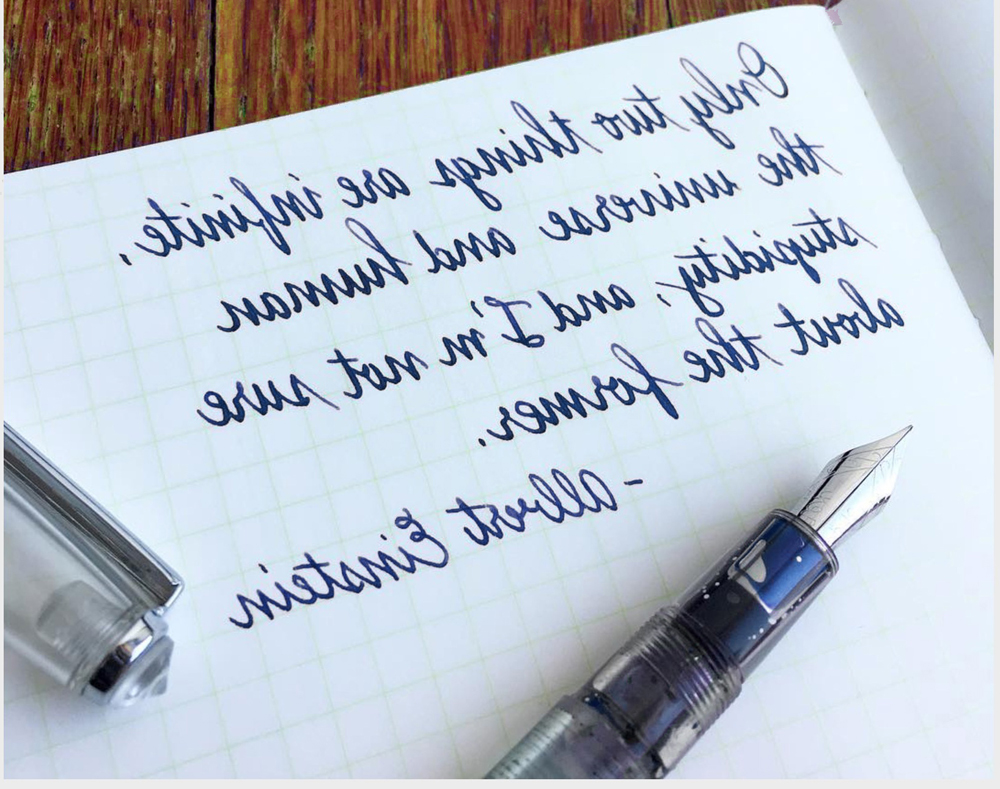 Only two things are infinite,
the universe and human
stupidity, and I'm not sure
about the former.
- Albert Einstein